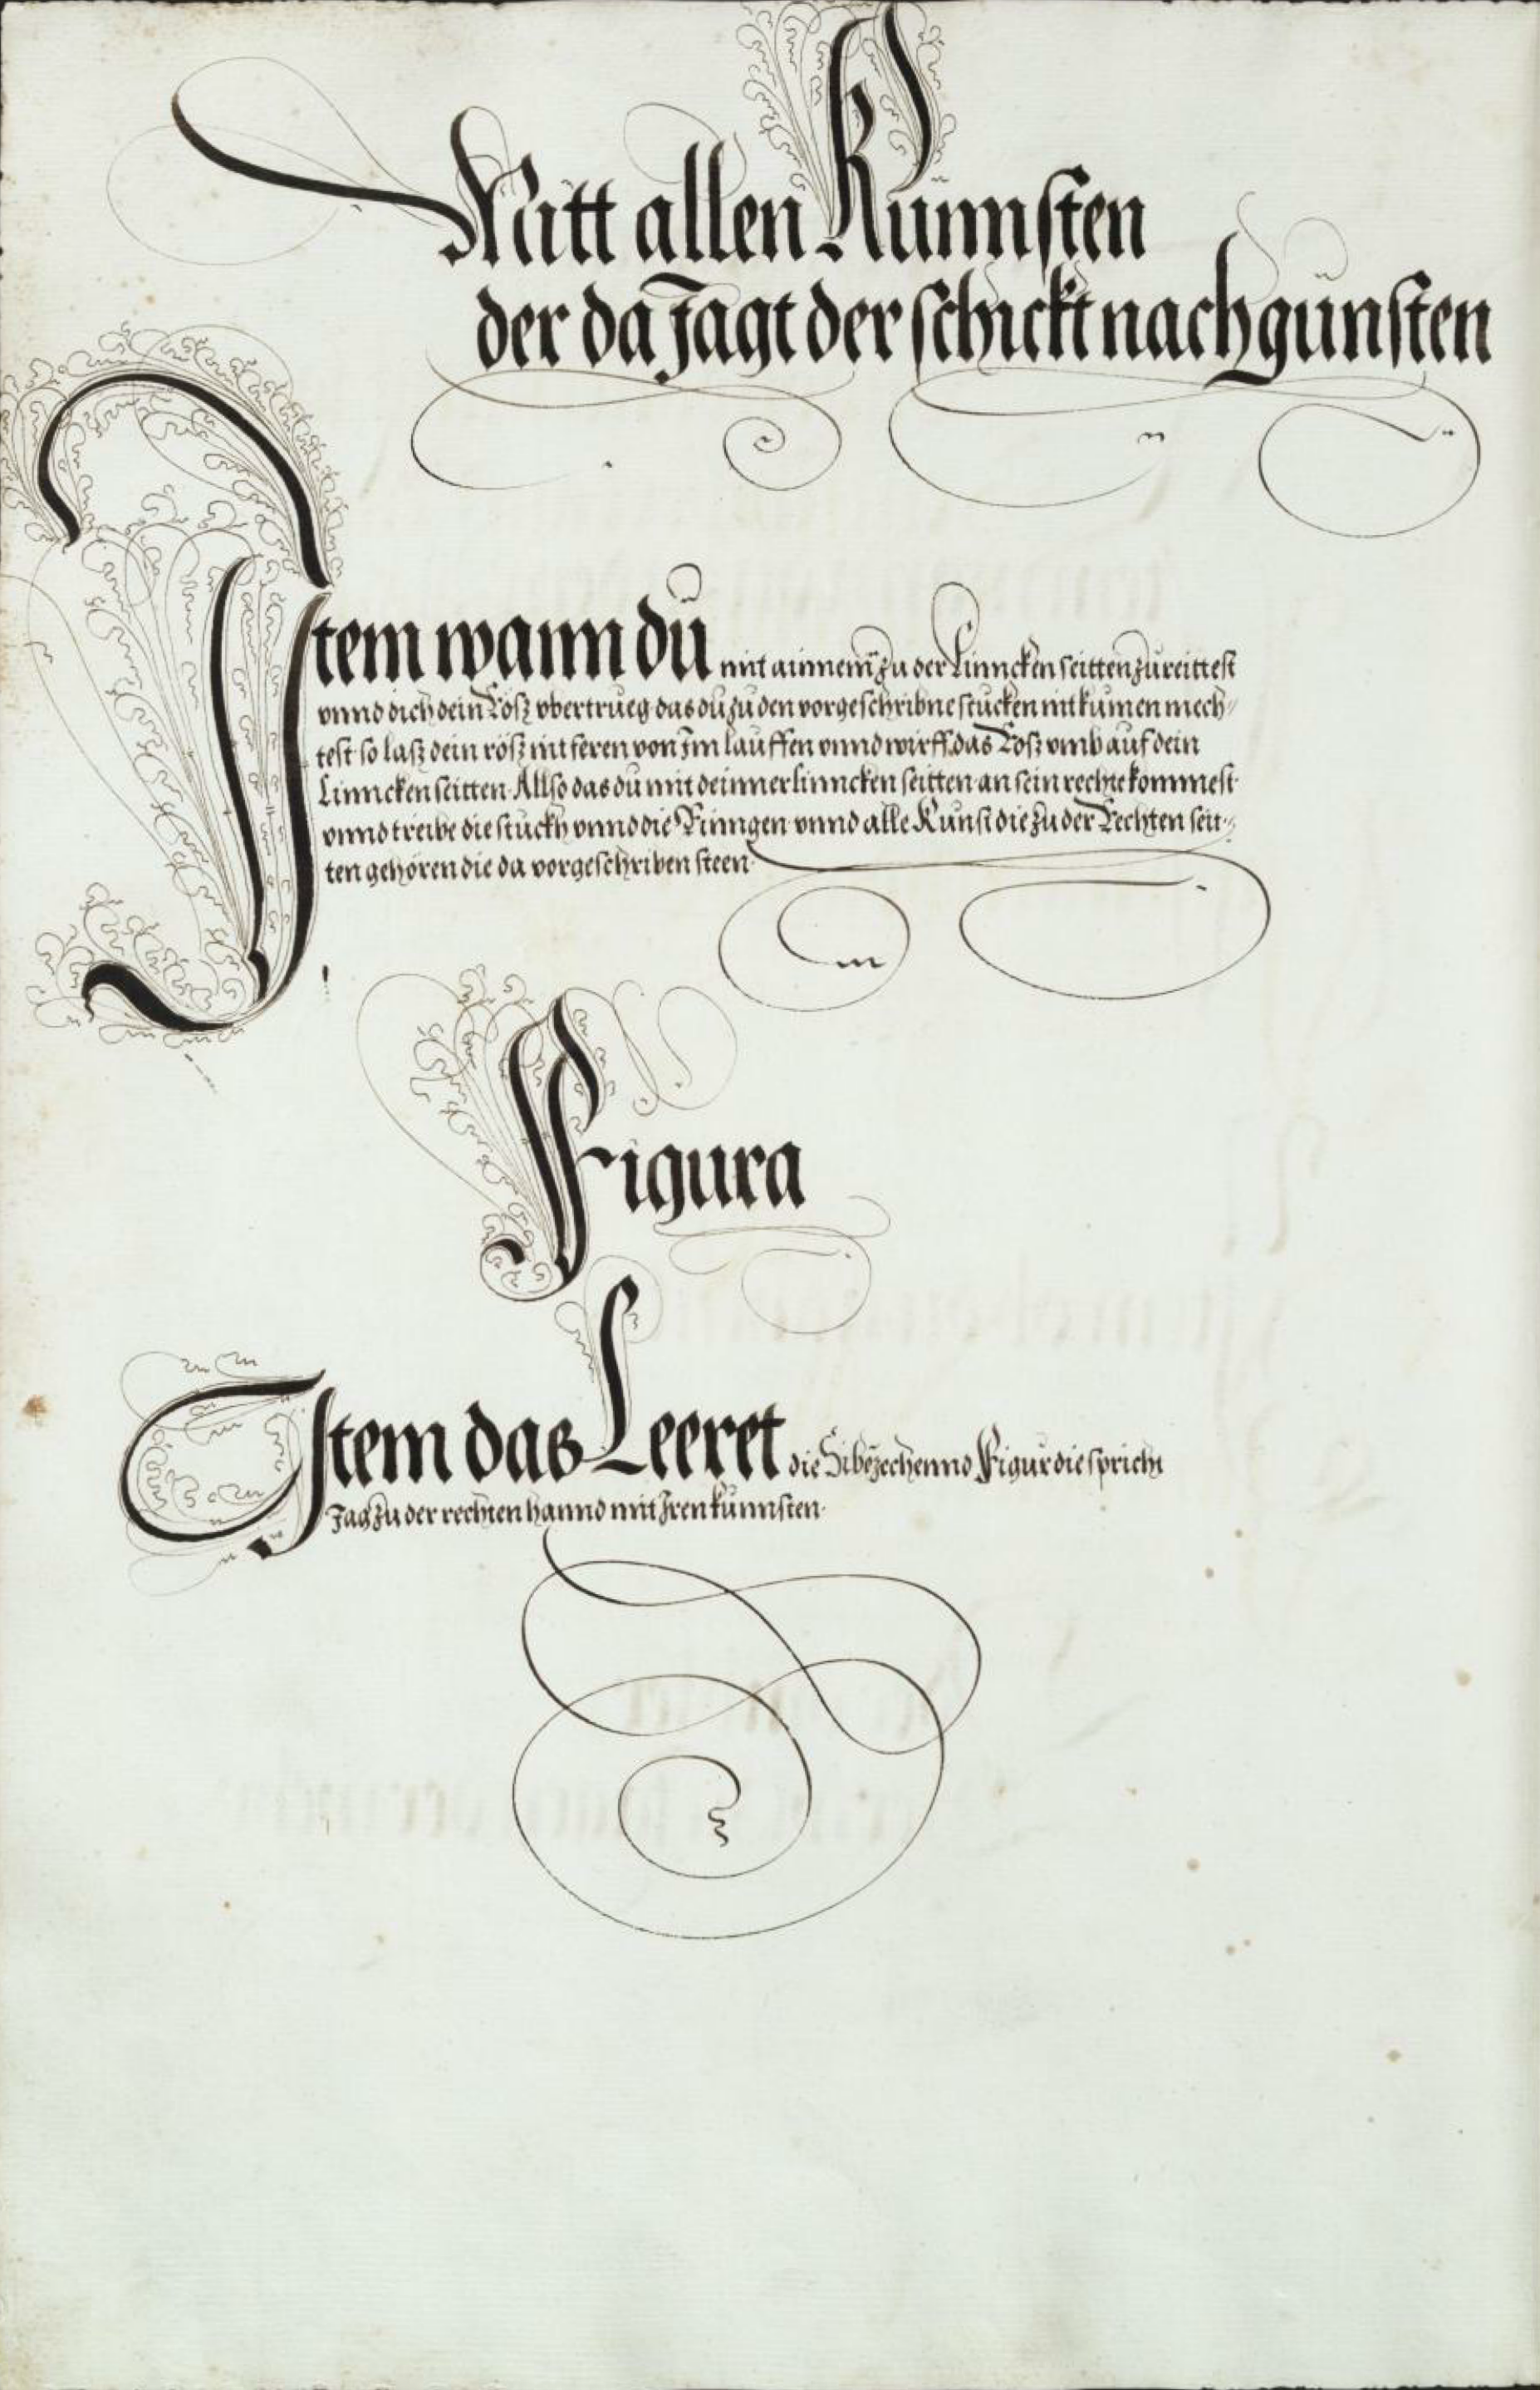 Mitt allen Künnsten
der da Jagt der schickt nach günsten
Item wann dü mit ainnem zu der Linncken seitten zureittest
vnnd dich dein Roß vbertrueg das du zu den vorgeschribne stucken nit kumen mech⸗
test so laß dein röß nit feren von Im lauffen vnnd wirff das Roß vmb auf dein
Linncken seitten Allso das du mit deinner linncken seitten an sein rechte kommest
vnnd treibe die stuckh vnnd die Rinngen vnnd alle Kunst die zu der Rechten seit⸗
ten gehören die da vorgeschriben steen
Figura
Item das Leeret die Sibēzechennd Figur die spricht
Jag zu der rechten hannd mit Iren künnsten